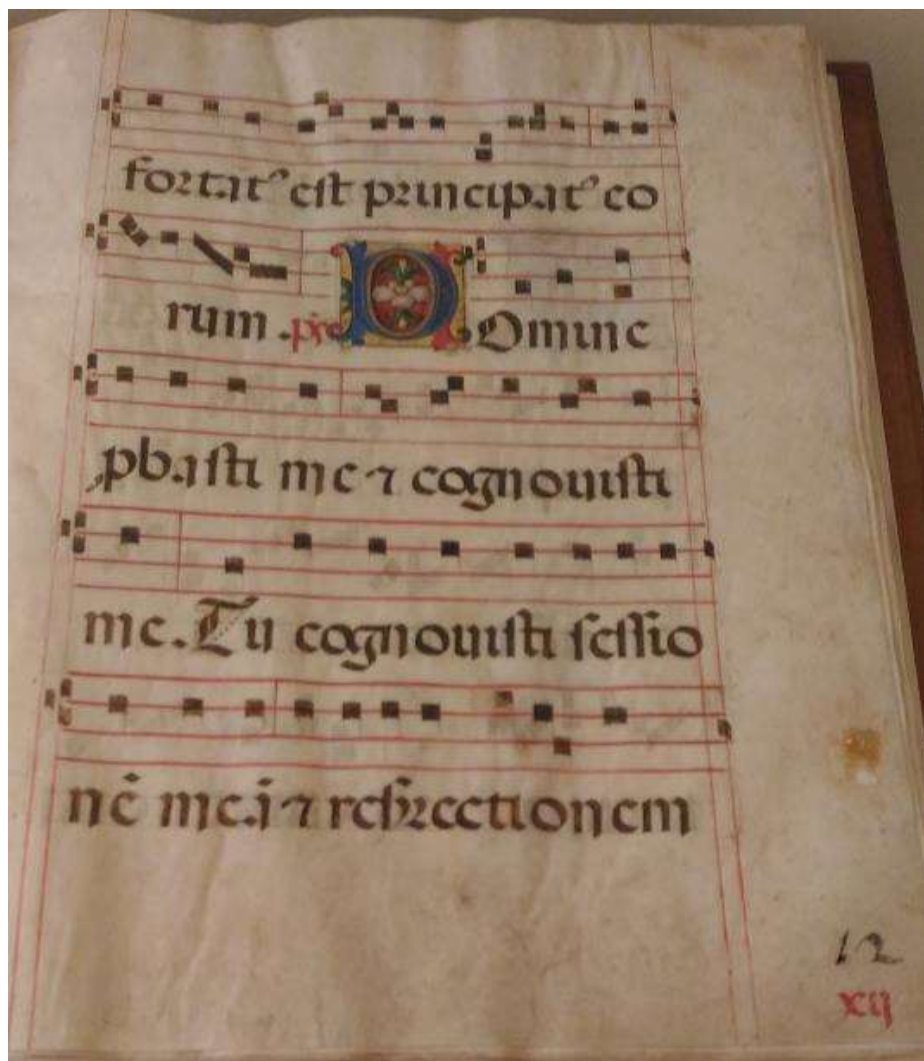 fortatꝰ est principatꝰ co
rum. ps̄ Domine
ꝓbasti me ⁊ cognouisti
me. Tu cognouisti sessio
nē meā ⁊ resurrectionem
12
xij